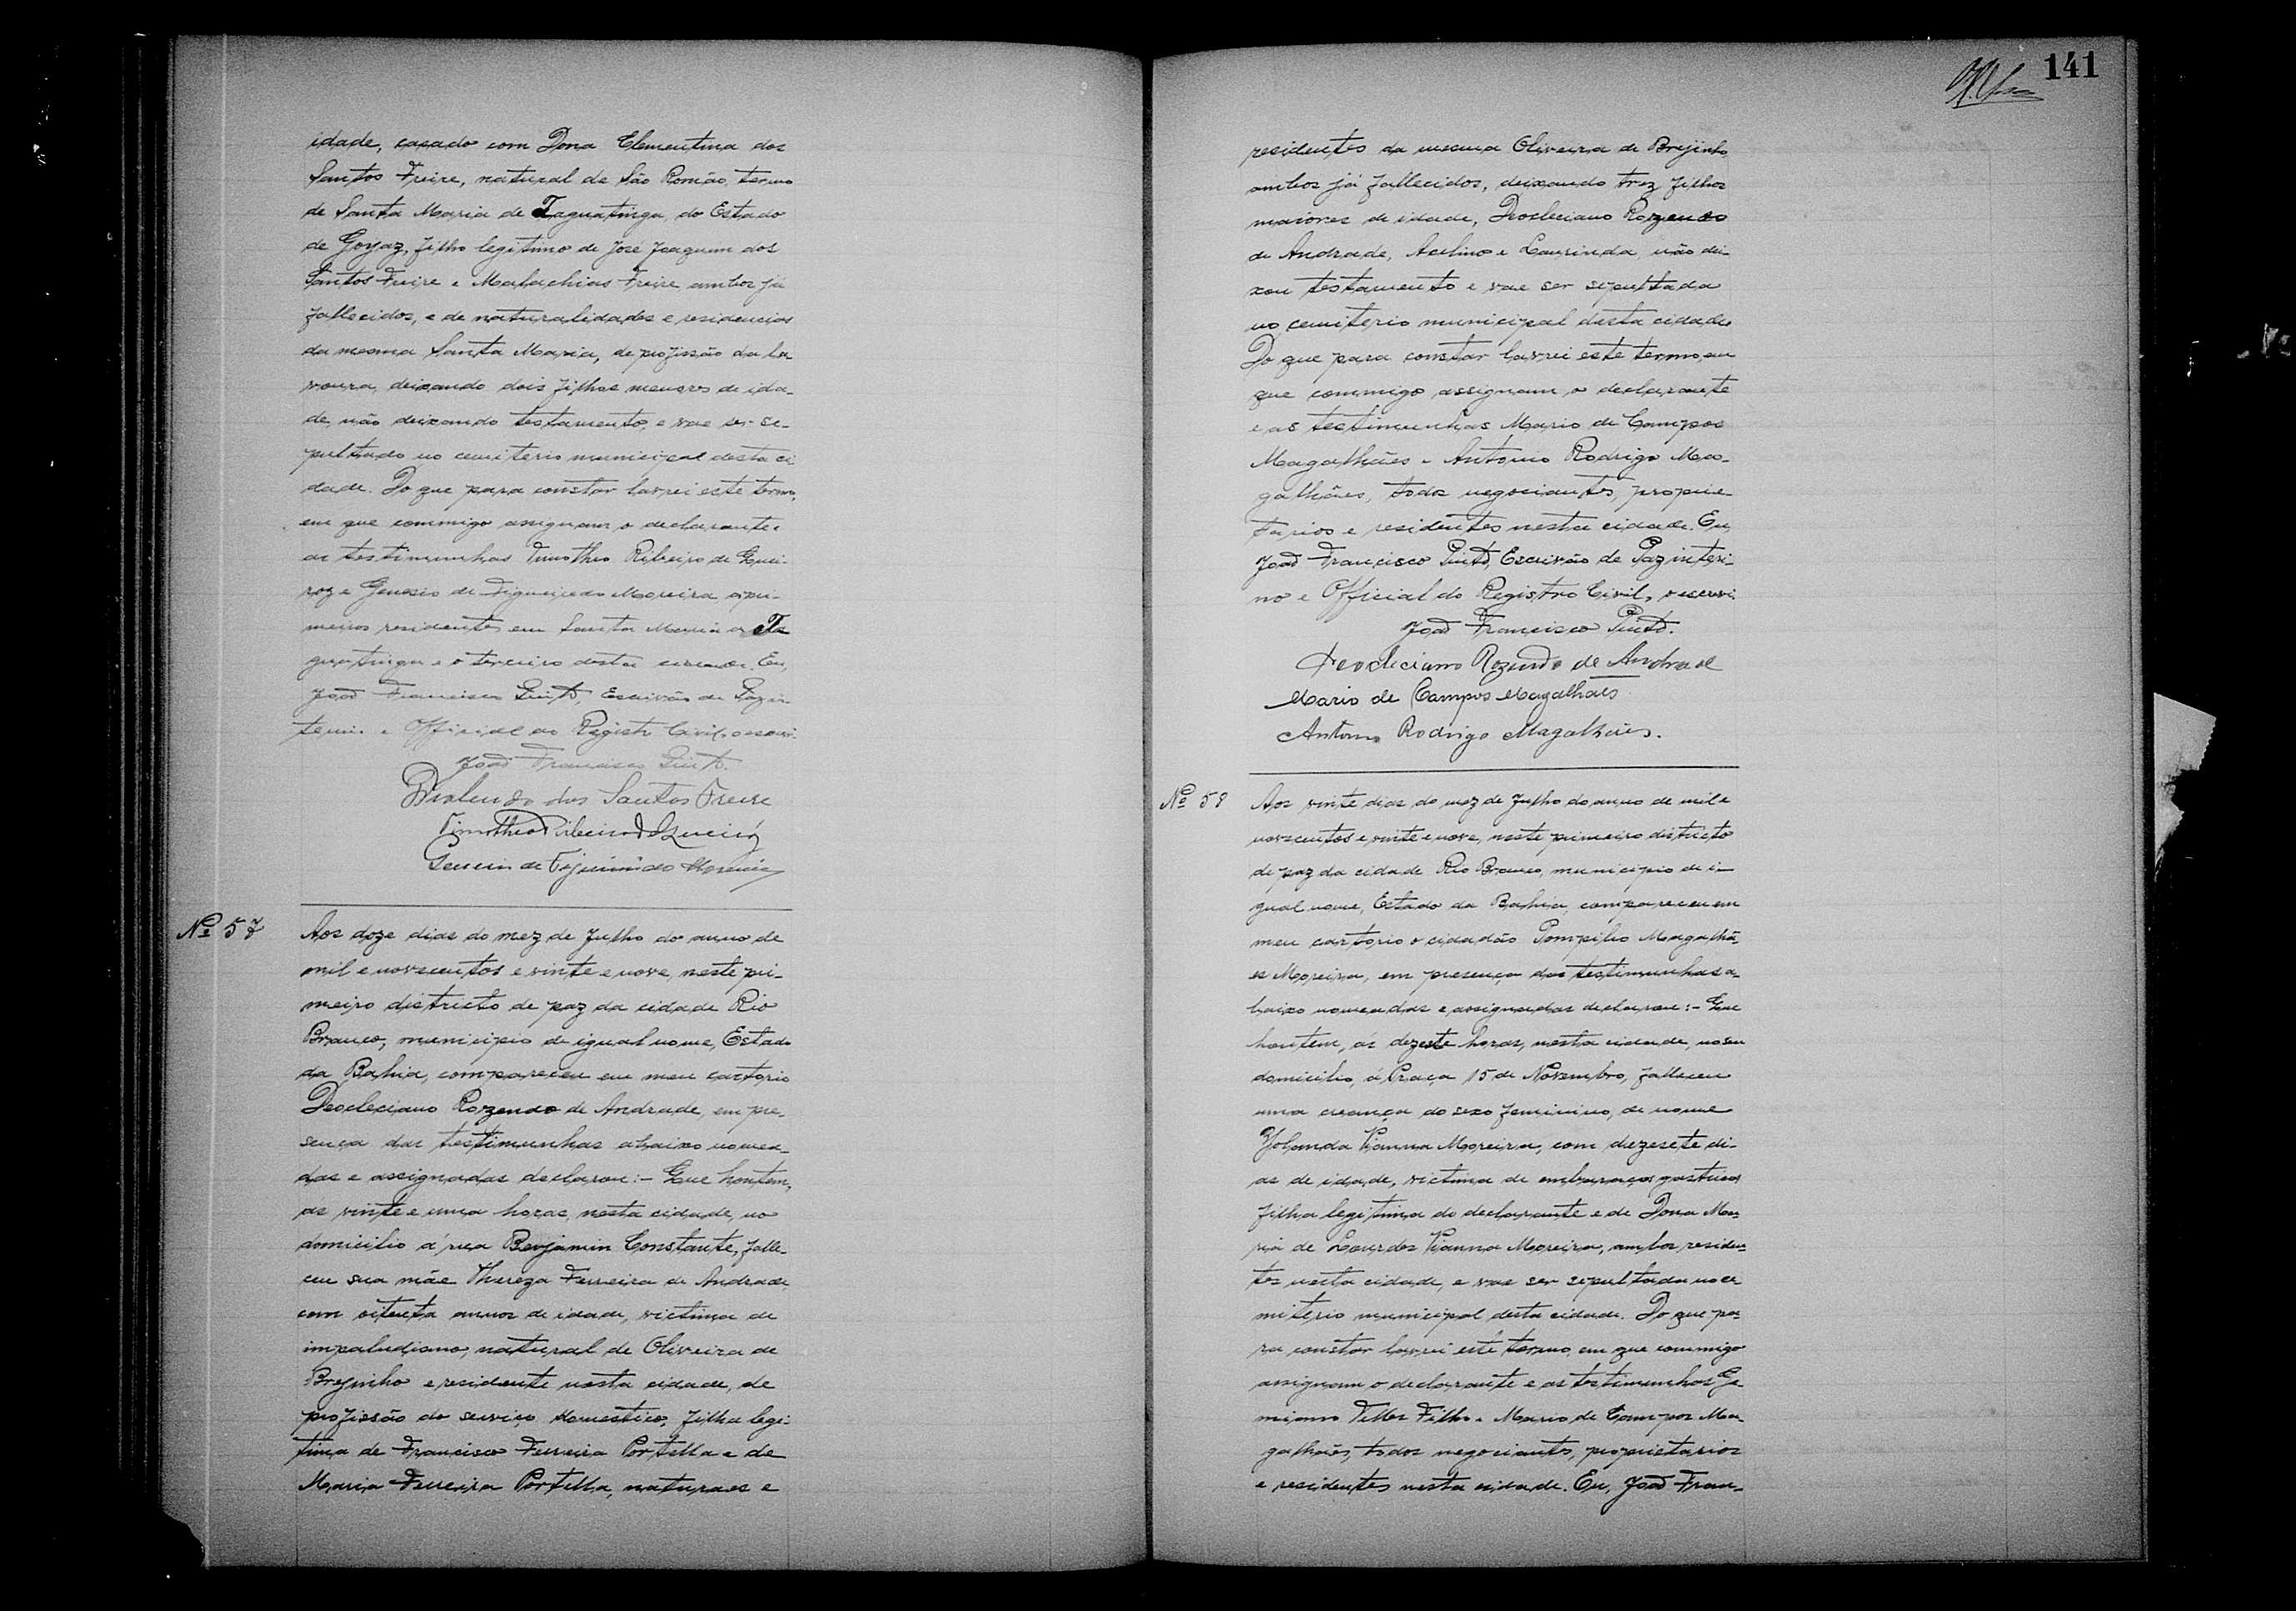 idade, casado com Dona Clementina dos
Santos Freire, natural de São Romão, termo
de Santa Maria de Taguatinga, do Estado
de Goyaz, filho legitimo de José Joaquim dos
Santos Freire e Malachias Freire, ambos já
fallecidos, e de naturalidades e residencias
da mesma Santa Maria, de profissão da la
voura, deixando dois filhos menores de ida-
de, não deixando testamento, e vae ser se-
pultado no cemiterio municipal desta ci
dade. Do que para constar lavrei este termo,
em que commigo assignam o declarante e
as testimunhas Timotheo Ribeiro de Quei-
roz e Genesio de Figueiredo Moreira, o pri-
meiros residentes em Santa Maria de Ta
guatinga e o terceiro desta cidade. Eu,
João Francisco Pinto, Escrivão de Paz in-
terino e Official do Registro Civil, o escrevi.
João Francisco Pinto.
dos Santos Freire
Timotheo Ribeiro de Queiróz
Genesio de Figueirêdo Moreira
Nº 57
Aos doze dias do mez de Julho do anno de
mil e novecentos e vinte e nove, neste pri-
meiro districto de paz da cidade Rio
Branco, municipio de igual nome, Estado
da Bahia, compareceu em meu cartorio
Deocleciano Rozendo de Andrade, em pre-
sença das testimunhas abaixo nomea-
das e assignadas declarou:- Que hontem,
as vinte e uma horas, nesta cidade, no
domicilio á rua Benjamin Constante, falle-
ceu sua mãe Thereza Ferreira de Andrade,
com oitenta annos de idade, victima de
impaludismo, natural de Oliveira de
Brejinho e residente nesta cidade, de
profissão do serviço domestico, filha legi-
tima de Francisco Ferreira Portella e de
Maria Ferreira Portella, naturaes e
141
residentes da mesma Oliveira de Brejinho,
ambos já fallecidos, deixando trez filhos
maiores de idade, Deocleciano Rozendo
de Andrade, Avelino e Laurinda, não dei-
xou testamento e vae ser sepultada
no cemiterio municipal desta cidade.
Do que para constar lavrei este termo, em
que commigo assignam o declarante
e as testimunhas Mario de Campos
Magalhães e Antonio Rodrigo Ma-
galhães, todos negociantes, proprie-
tarios e residentes nesta cidade. Eu,
João Francisco Pinto, Escrivão de Paz interi-
no e Official do Registro Civil, o escrevi.
João Francisco Pinto.
Deocleciano Rozendo de Andrade
Mario de Campos Magalhães
Antonio Rodrigo Magalhães.
Nº 58
Aos vinte dias do mez de Julho do anno de mil e
novecentos e vinte e nove, neste primeiro districto
de paz da cidade Rio Branco, municipio de i-
gual nome, Estado da Bahia, compareceu em
meu cartorio o cidadão Pompilio Magalhã-
es Moreira, em presença das testimunhas a-
baixo nomeadas e assignadas declarou:- Que
hontem, ás dezesete horas, nesta cidade, no seu
domicilio, á Praça 15 de Novembro, falleceu
uma creança do sexo feminino, de nome
Yolanda Vianna Moreira, com dezesete di-
as de idade, victima de embaraços gastricos,
filha legitima do declarante e de Dona Ma-
ria de Lourdes Vianna Moreira, ambos residen-
tes nesta cidade, e vae ser sepultada no ce
miterio municipal desta cidade. Do que pa-
ra constar lavrei este termo, em que commigo
assignam o declarante e as testimunhas Ge
miano Telles Filho e Mario de Campos Ma-
galhães, todos negociantes, proprietarios
e residentes nesta cidade. Eu, João Fran-